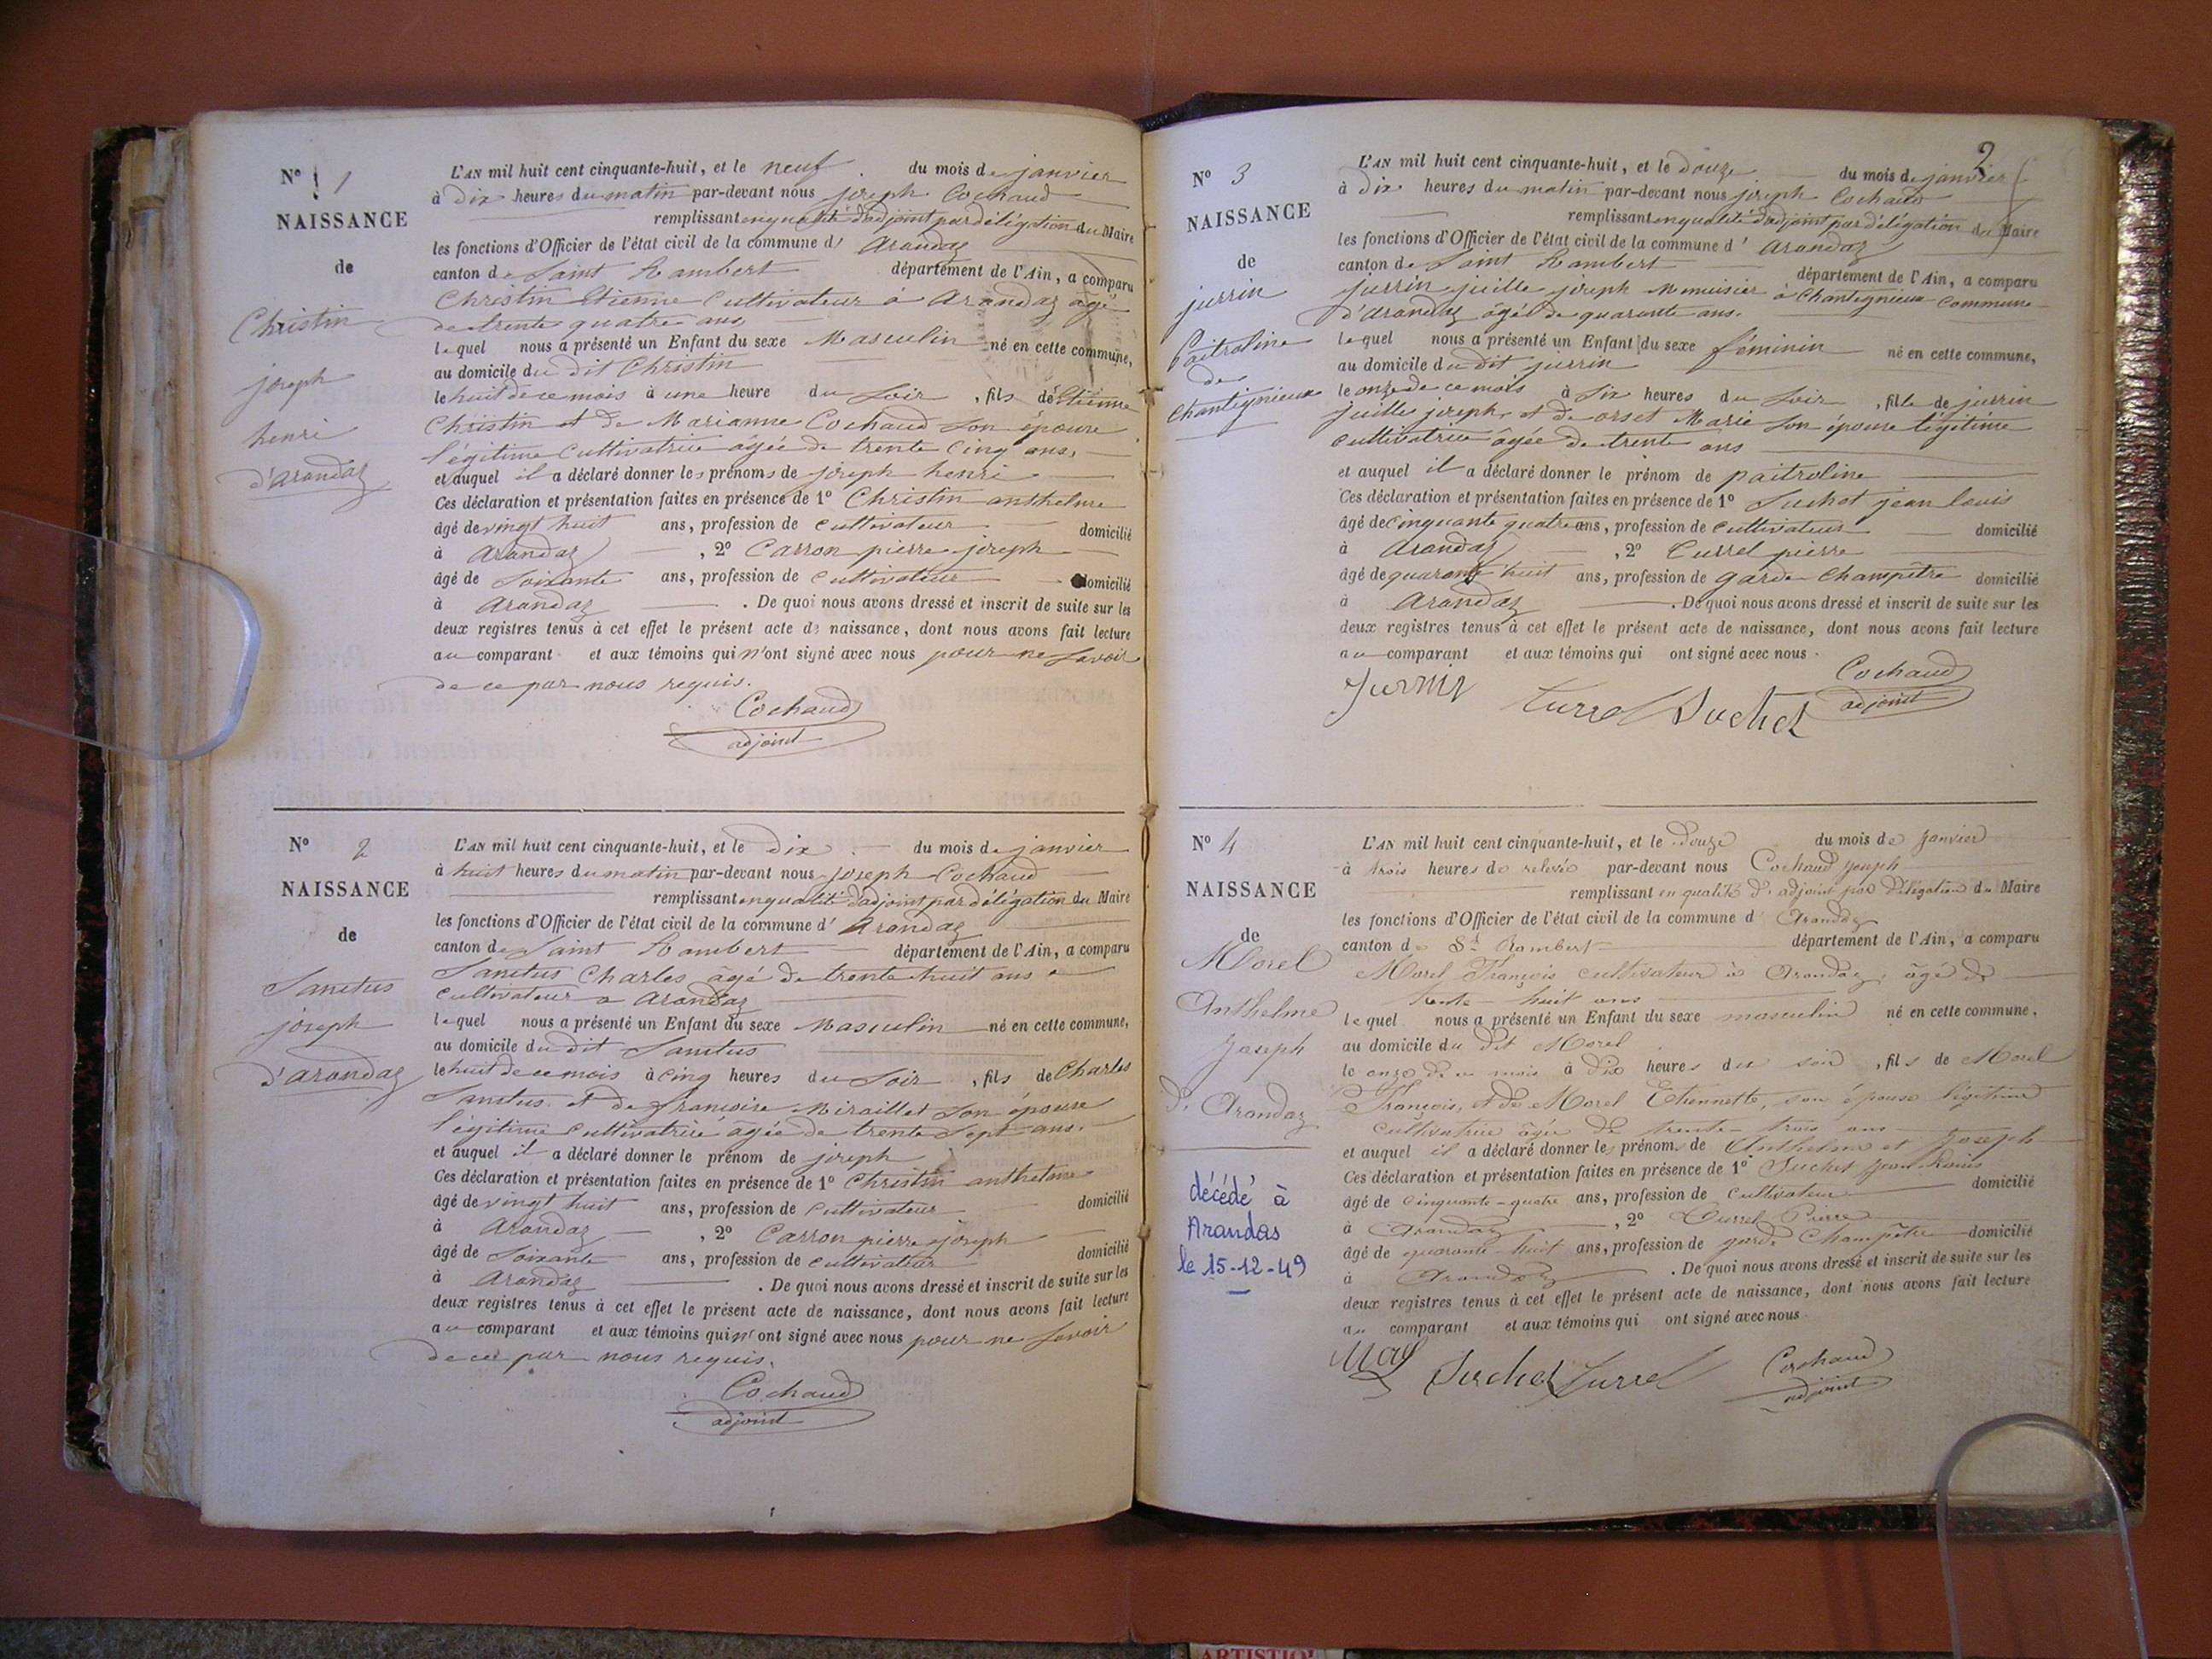 N° 1
NAISSANCE
de
Christin
joseph
henri
d'arandaz
L'AN mil huit cent cinquante-huit, et le neuf du mois de janvier
à dix heures du matin par-devant nous joseph Cochaud
remplissant en qualité d'adjoint par délégation du Maire
les fonctions d'Officier de l'état civil de la commune d' arandaz
canton de Saint Rambert département de l'Ain, a comparu
Christin Etienne Cultivateur à Arandaz agé
de trente quatre ans
lequel nous a présenté un Enfant du sexe Masculin né en cette commune,
au domicile du dit Christin
le huit de ce mois à une heure du soir, fils de Etienne
Christin et de Marianne Cochaud son épouse
légitime Cultivatrice âgée de trente cinq ans,
et auquel il a déclaré donner les prénoms de joseph henri
Ces déclaration et présentation faites en présence de 1° Christin anthelme
âgé de vingt huit ans, profession de cultivateur domicilié
à Arandaz, 2° Carron pierre joseph
âgé de soixante ans, profession de cultivateur domicilié
à Arandaz. De quoi nous avons dressé et inscrit de suite sur les
deux registres tenus à cet effet le présent acte de naissance, dont nous avons fait lecture
au comparant et aux témoins qui n'ont signé avec nous pour ne savoir
de ce par nous requis.
Cochaud
adjoint
N° 2
NAISSANCE
de
Sanctus
joseph
d'arandaz
L'AN mil huit cent cinquante-huit, et le dix du mois de janvier
à huit heures du matin par-devant nous joseph Cochaud
remplissant en qualité d'adjoint par délégation du Maire
les fonctions d'Officier de l'état civil de la commune d' Arandaz
canton de Saint Rambert département de l'Ain, a comparu
Sanctus Charles âgé de trente huit ans
cultivateur a Arandaz
lequel nous a présenté un Enfant du sexe Masculin né en cette commune,
au domicile du dit Sanctus
le huit de ce mois à cinq heures du soir, fils de Charles
Sanctus et de françoise Miraillet son épouse
légitime cultivatrice âgée de trente sept ans.
et auquel il a déclaré donner le prénom de joseph
Ces déclaration et présentation faites en présence de 1° Christin anthelme
âgé de vingt huit ans, profession de cultivateur domicilié
à Arandaz, 2° Carron pierre joseph
âgé de soixante ans, profession de cultivateur domicilié
à Arandaz. De quoi nous avons dressé et inscrit de suite sur les
deux registres tenus à cet effet le présent acte de naissance, dont nous avons fait lecture
au comparant et aux témoins qui n'ont signé avec nous pour ne savoir
de ce par nous requis.
Cochaud
adjoint
2
N° 3
NAISSANCE
de
jurrin
Paitroline
de
Chanteynieux
L'AN mil huit cent cinquante-huit, et le douze du mois de janvier
à dix heures du matin par-devant nous joseph Cochaud
remplissant en qualité d'adjoint par délégation du Maire
les fonctions d'Officier de l'état civil de la commune d' arandaz
canton de Saint Rambert département de l'Ain, a comparu
jurrin juille joseph Menuisier à Chanteynieux Commune
d'arandaz âgé de quarante ans.
lequel nous a présenté un Enfant du sexe féminin né en cette commune,
au domicile du dit jurrin
le onze de ce mois à six heures du soir, fille de jurrin
juille joseph et de orset Marie son épouse légitime
cultivatrice âgée de trente ans
et auquel il a déclaré donner le prénom de paitroline
Ces déclaration et présentation faites en présence de 1° Suchet jean louis
âgé de cinquante quatre ans, profession de cultivateur domicilié
à Arandaz, 2° Turrel pierre
âgé de quarante huit ans, profession de garde Champêtre domicilié
à Arandaz. De quoi nous avons dressé et inscrit de suite sur les
deux registres tenus à cet effet le présent acte de naissance, dont nous avons fait lecture
au comparant et aux témoins qui ont signé avec nous.
Jurrin Turrel Suchet Cochaud
adjoint
N° 4
NAISSANCE
de
Morel
Anthelme
Joseph
d'Arandaz
décédé à
Arandas
le 15-12-49
L'AN mil huit cent cinquante-huit, et le douze du mois de janvier
à trois heures de relevée par-devant nous Cochaud joseph
remplissant en qualité d'adjoint par délégation du Maire
les fonctions d'Officier de l'état civil de la commune d' Arandaz
canton de St Rambert département de l'Ain, a comparu
Morel François cultivateur à Arandaz, âgé de
trente-huit ans
lequel nous a présenté un Enfant du sexe masculin né en cette commune,
au domicile du dit Morel
le onze de ce mois à dix heures du soir, fils de Morel
François, et de Morel Etiennette, son épouse légitime
cultivatrice âgée de trente-trois ans
et auquel il a déclaré donner les prénoms de Anthelme et Joseph
Ces déclaration et présentation faites en présence de 1° Suchet Jean-Louis
âgé de cinquante-quatre ans, profession de cultivateur domicilié
à Arandaz, 2° Turrel Pierre
âgé de quarante-huit ans, profession de garde Champêtre domicilié
à Arandaz. De quoi nous avons dressé et inscrit de suite sur les
deux registres tenus à cet effet le présent acte de naissance, dont nous avons fait lecture
au comparant et aux témoins qui ont signé avec nous.
Suchet Turrel Cochaud
adjoint